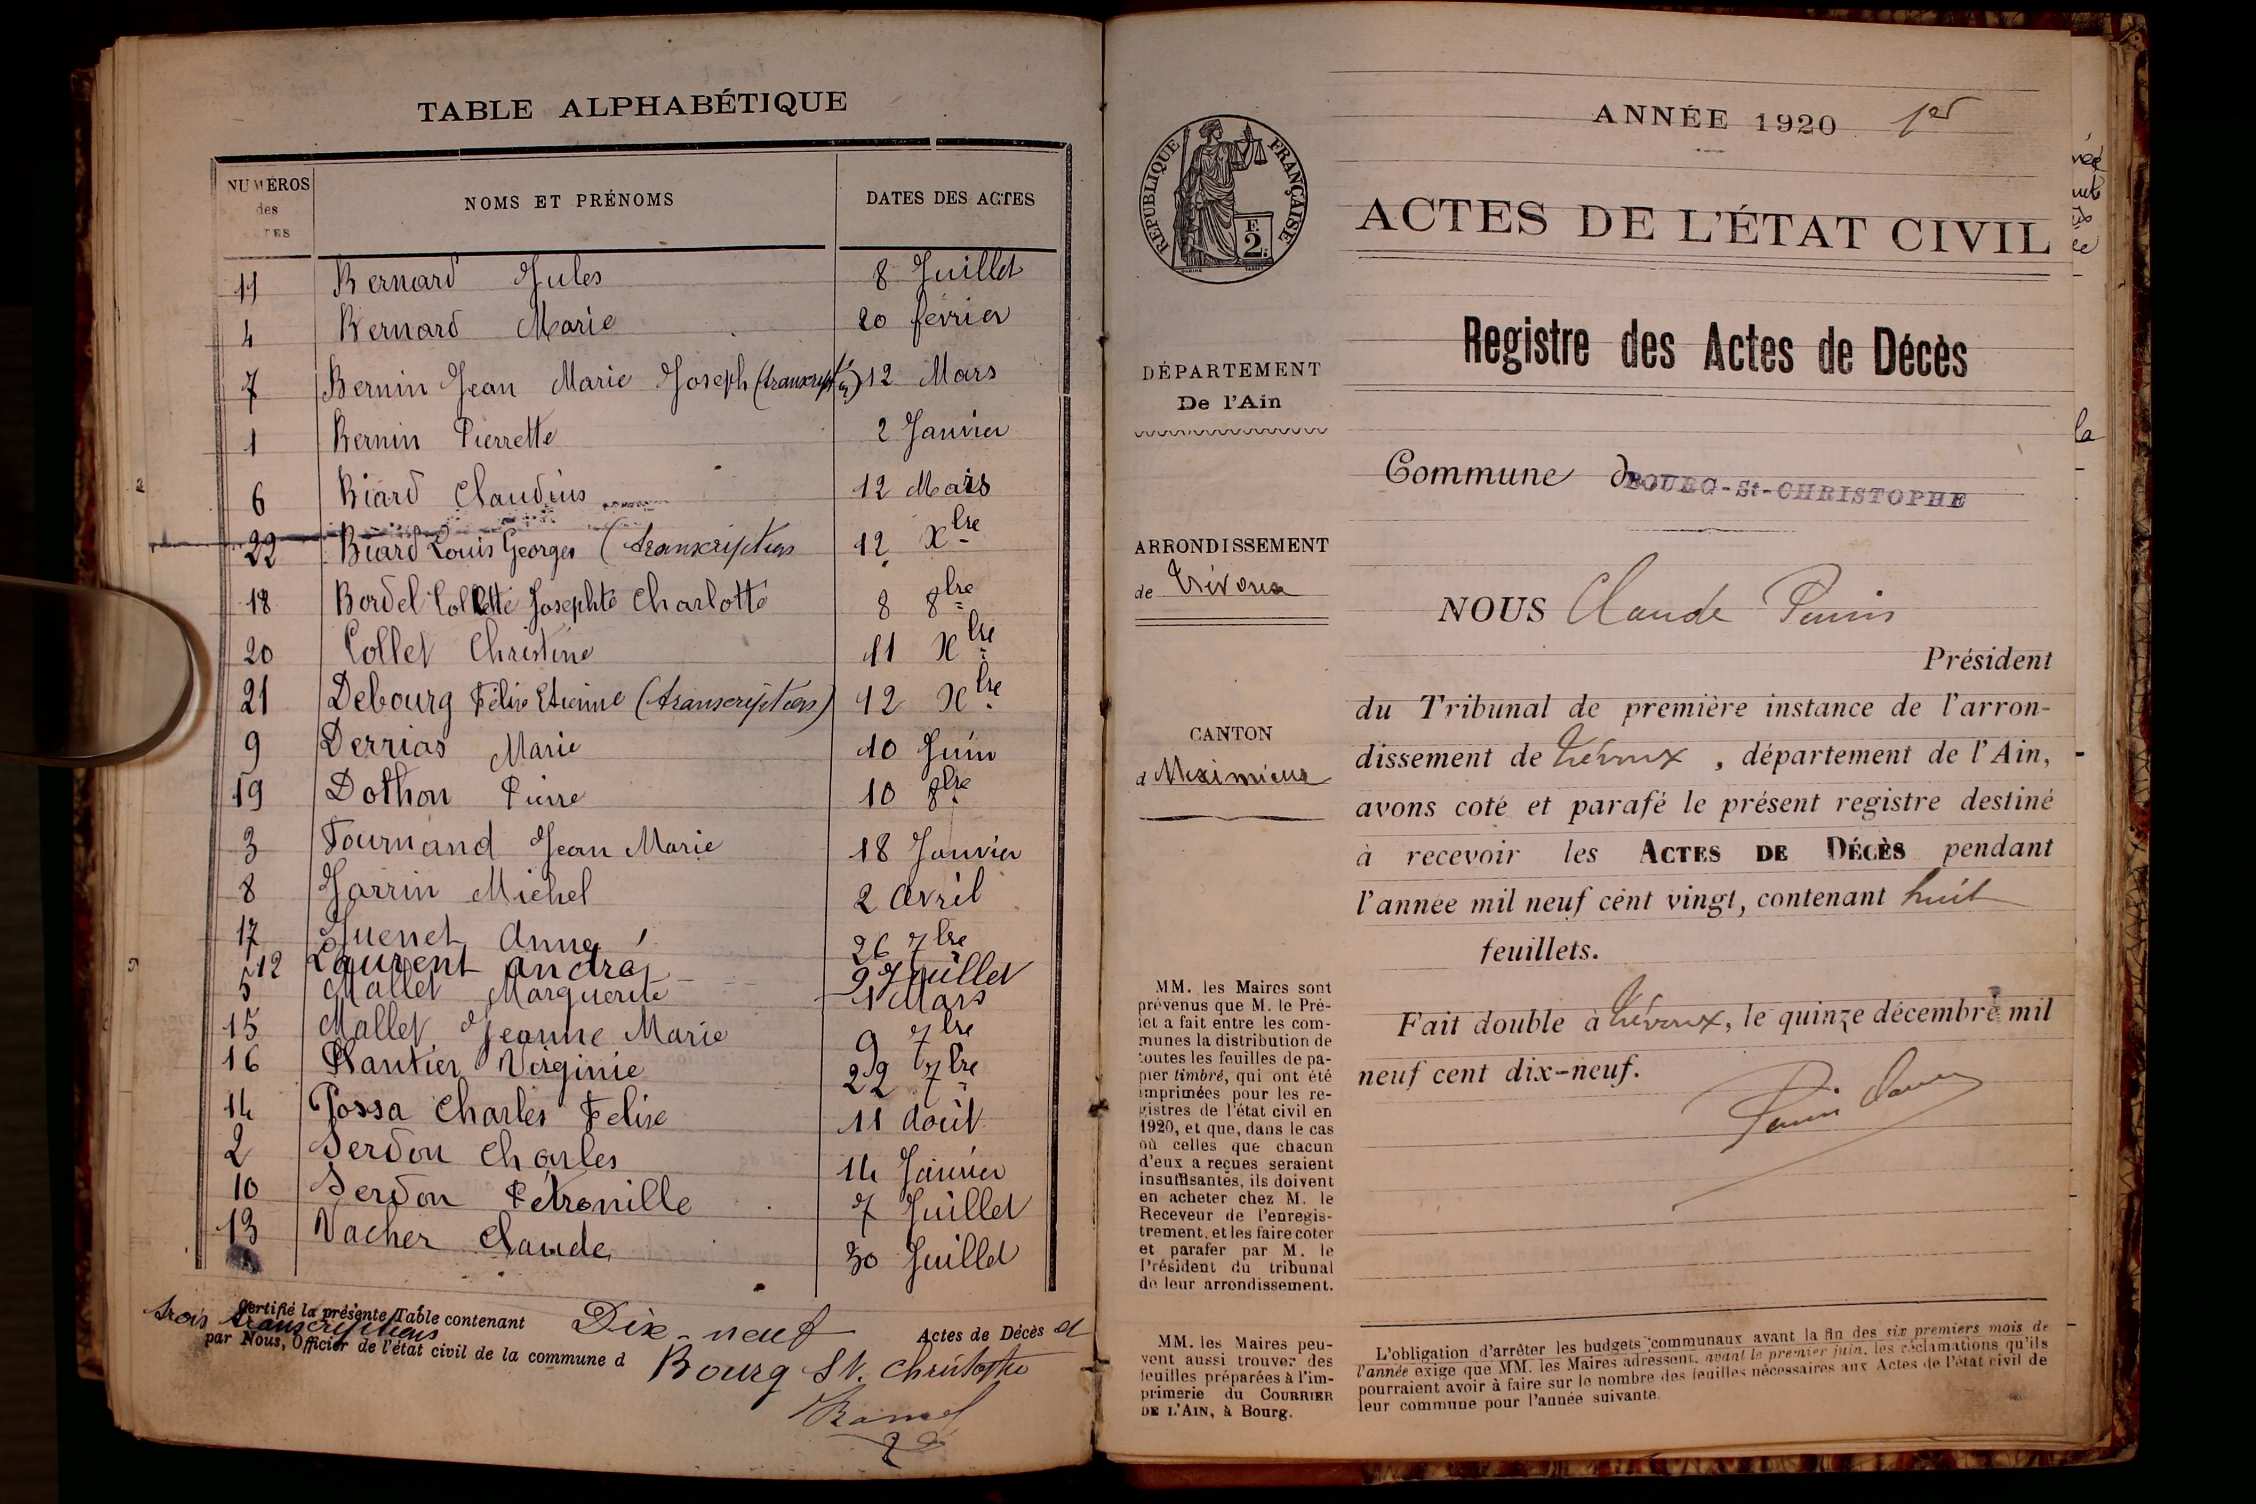 TABLE ALPHABÉTIQUE
NUMÉROS
des
NOMS ET PRÉNOMS
DATES DES ACTES
11 Bernard Jules 8 Juillet
4 Bernard Marie 20 février
7 Bernin Jean Marie Joseph (transcription) 12 Mars
1 Bernin Pierrette 2 Janvier
6 Biard Claudius 12 Mars
22 Biard Louis Georges (transcription 12 Xbre
18 Bordel Collette Josephte Charlotte 8 8bre
20 Collet Christine 11 Xbre
21 Debourg Félix Etienne (transcription) 12 Xbre
9 Derrias Marie 10 Juin
19 Dothon Pierre 10 8bre
3 Fournand Jean Marie 18 Janvier
8 Jarrin Michel 2 Avril
17 Juenet Anna 26 7bre
12 Laurent André 9 Juillet
5 Mallet Marguerite 1 Mars
15 Mallet Jeanne Marie 9 7bre
16 Plantier Virginie 22 7bre
14 Possa Charles Felix 11 Août
2 Serdon Charles 14 Janvier
10 Serdon Pétronille 7 Juillet
13 Vacher Claude 30 Juillet
Certifié la présente Table contenant Dix-neuf Actes de Décès et
trois transcriptions
par Nous, Officier de l'état civil de la commune d Bourg St. Christophe
RÉPUBLIQUE FRANÇAISE
F.
2
DÉPARTEMENT
De l'Ain
ARRONDISSEMENT
de Trévoux
CANTON
d Meximieux
MM. les Maires sont
prévenus que M. le Pré-
fet a fait entre les com-
munes la distribution de
toutes les feuilles de pa-
pier timbré, qui ont été
imprimées pour les re-
gistres de l'état civil en
1920, et que, dans le cas
où celles que chacun
d'eux a reçues seraient
insuffisantes, ils doivent
en acheter chez M. le
Receveur de l'enregis-
trement, et les faire coter
et parafer par M. le
Président du tribunal
de leur arrondissement.
MM. les Maires peu-
vent aussi trouver des
feuilles préparées à l'im-
primerie du COURRIER
DE L'AIN, à Bourg.
ANNÉE 1920 1er
ACTES DE L'ÉTAT CIVIL
Registre des Actes de Décès
Commune de BOURG-St-CHRISTOPHE
NOUS Claude Perrin
Président
du Tribunal de première instance de l'arron-
dissement de Trévoux, département de l'Ain,
avons coté et parafé le présent registre destiné
à recevoir les ACTES DE DÉCÈS pendant
l'année mil neuf cent vingt, contenant huit
feuillets.
Fait double à Trévoux, le quinze décembre mil
neuf cent dix-neuf.
L'obligation d'arrêter les budgets communaux avant la fin des six premiers mois de
l'année exige que MM. les Maires adressent, avant le premier juin, les réclamations qu'ils
pourraient avoir à faire sur le nombre des feuilles nécessaires aux Actes de l'état civil de
leur commune pour l'année suivante.
la